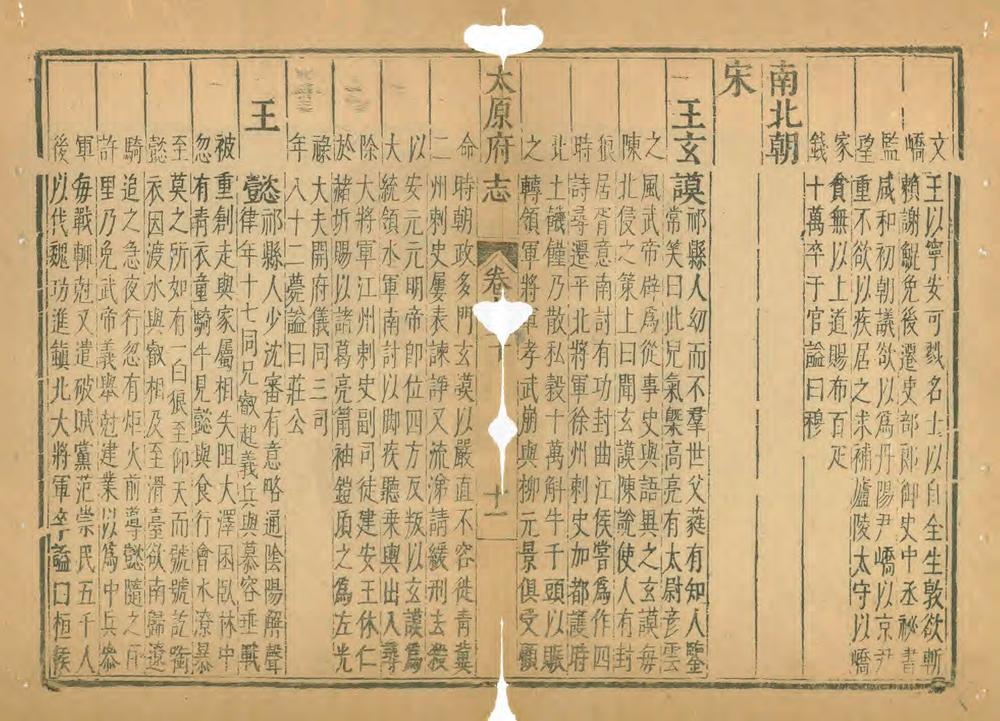 文王以寧安可戮名士以自全生敦欲斬
嶠賴謝鯤免後遷吏部郎御史中丞祕書
監咸和初朝議欲以為丹陽尹嶠以京尹
望重不欲以疾居之求補廬陵太守以嶠
家貧無以上道賜布百疋
錢十萬卒于官謚曰穆
南北朝
宋
王玄謨祁縣人幼而不羣世父蕤有知人鑒
常笑曰此兒氣槩高亮有太尉彥雲
之風武帝辟為從事史與語異之玄謨每
陳北侵之策上曰聞玄謨陳說使人有封
狼居胥意南討有功封曲江侯嘗為作四
時詩尋遷平北將軍徐州刺史加都護時
北土饑饉乃散私穀十萬斛牛千頭以賑
之轉領軍將軍孝武崩與柳元景俱受顧
太原府志 卷 十一
命時朝政多門玄謨以嚴直不容徙青冀
二州刺史屢表諫諍又流涕請緩刑去殺
以安元元明帝即位四方反叛以玄謨為
大統領水軍南討以脚疾聽乘輿出入尋
除大將軍江州刺史副司徒建安王休仁
於赭圻賜以諸葛亮筩袖鎧頃之為左光
祿大夫開府儀同三司
年八十二薨謚曰莊公
王懿祁縣人少沈審有意略通陰陽解聲
律年十七同兄叡起義兵與慕容垂戰
被重創走與家屬相失阻大澤困臥林中
忽有青衣童騎牛見懿與食行會水潦暴
至莫之所如有一白狼至仰天而號號訖銜
懿衣因渡水與叡相及至滑臺欲南歸遼
騎追之急夜行忽有炬火前導懿隨之百
許里乃免武帝義舉尅建業以為中兵參
軍每戰輒尅又遣破賊黨范崇民五千人
後以伐魏功進鎮北大將軍卒謚曰桓侯